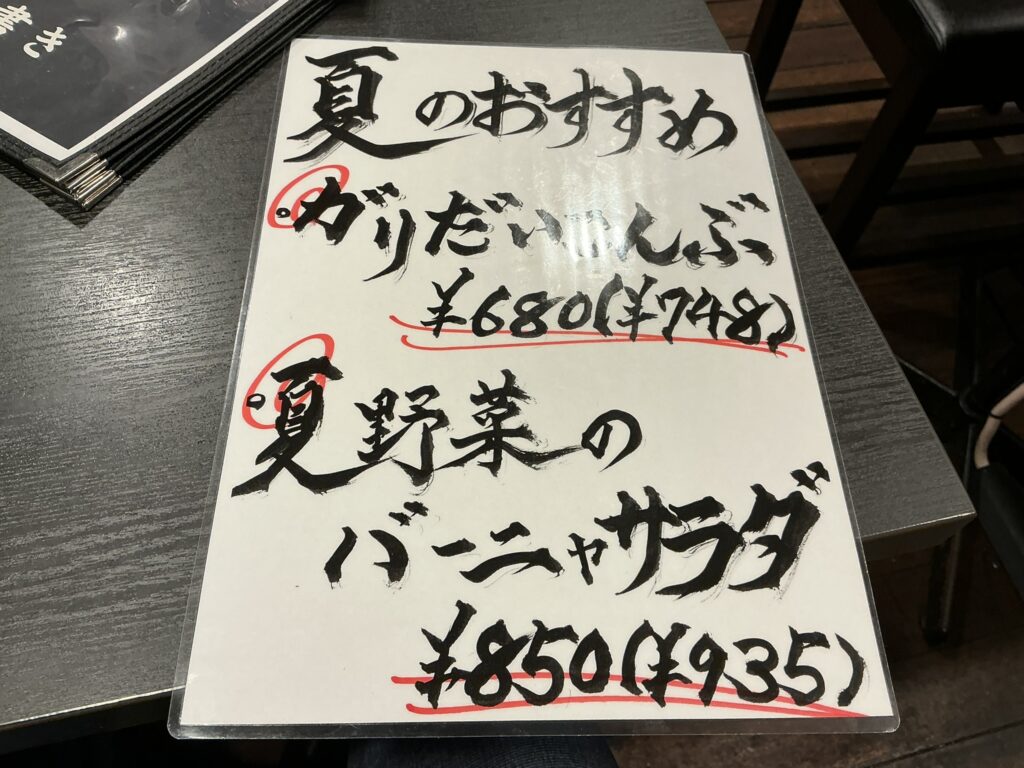 夏のおすすめ
・ガリだいこんぶ
¥680(¥748)
・夏野菜の
バーニャサラダ
¥850(¥935)